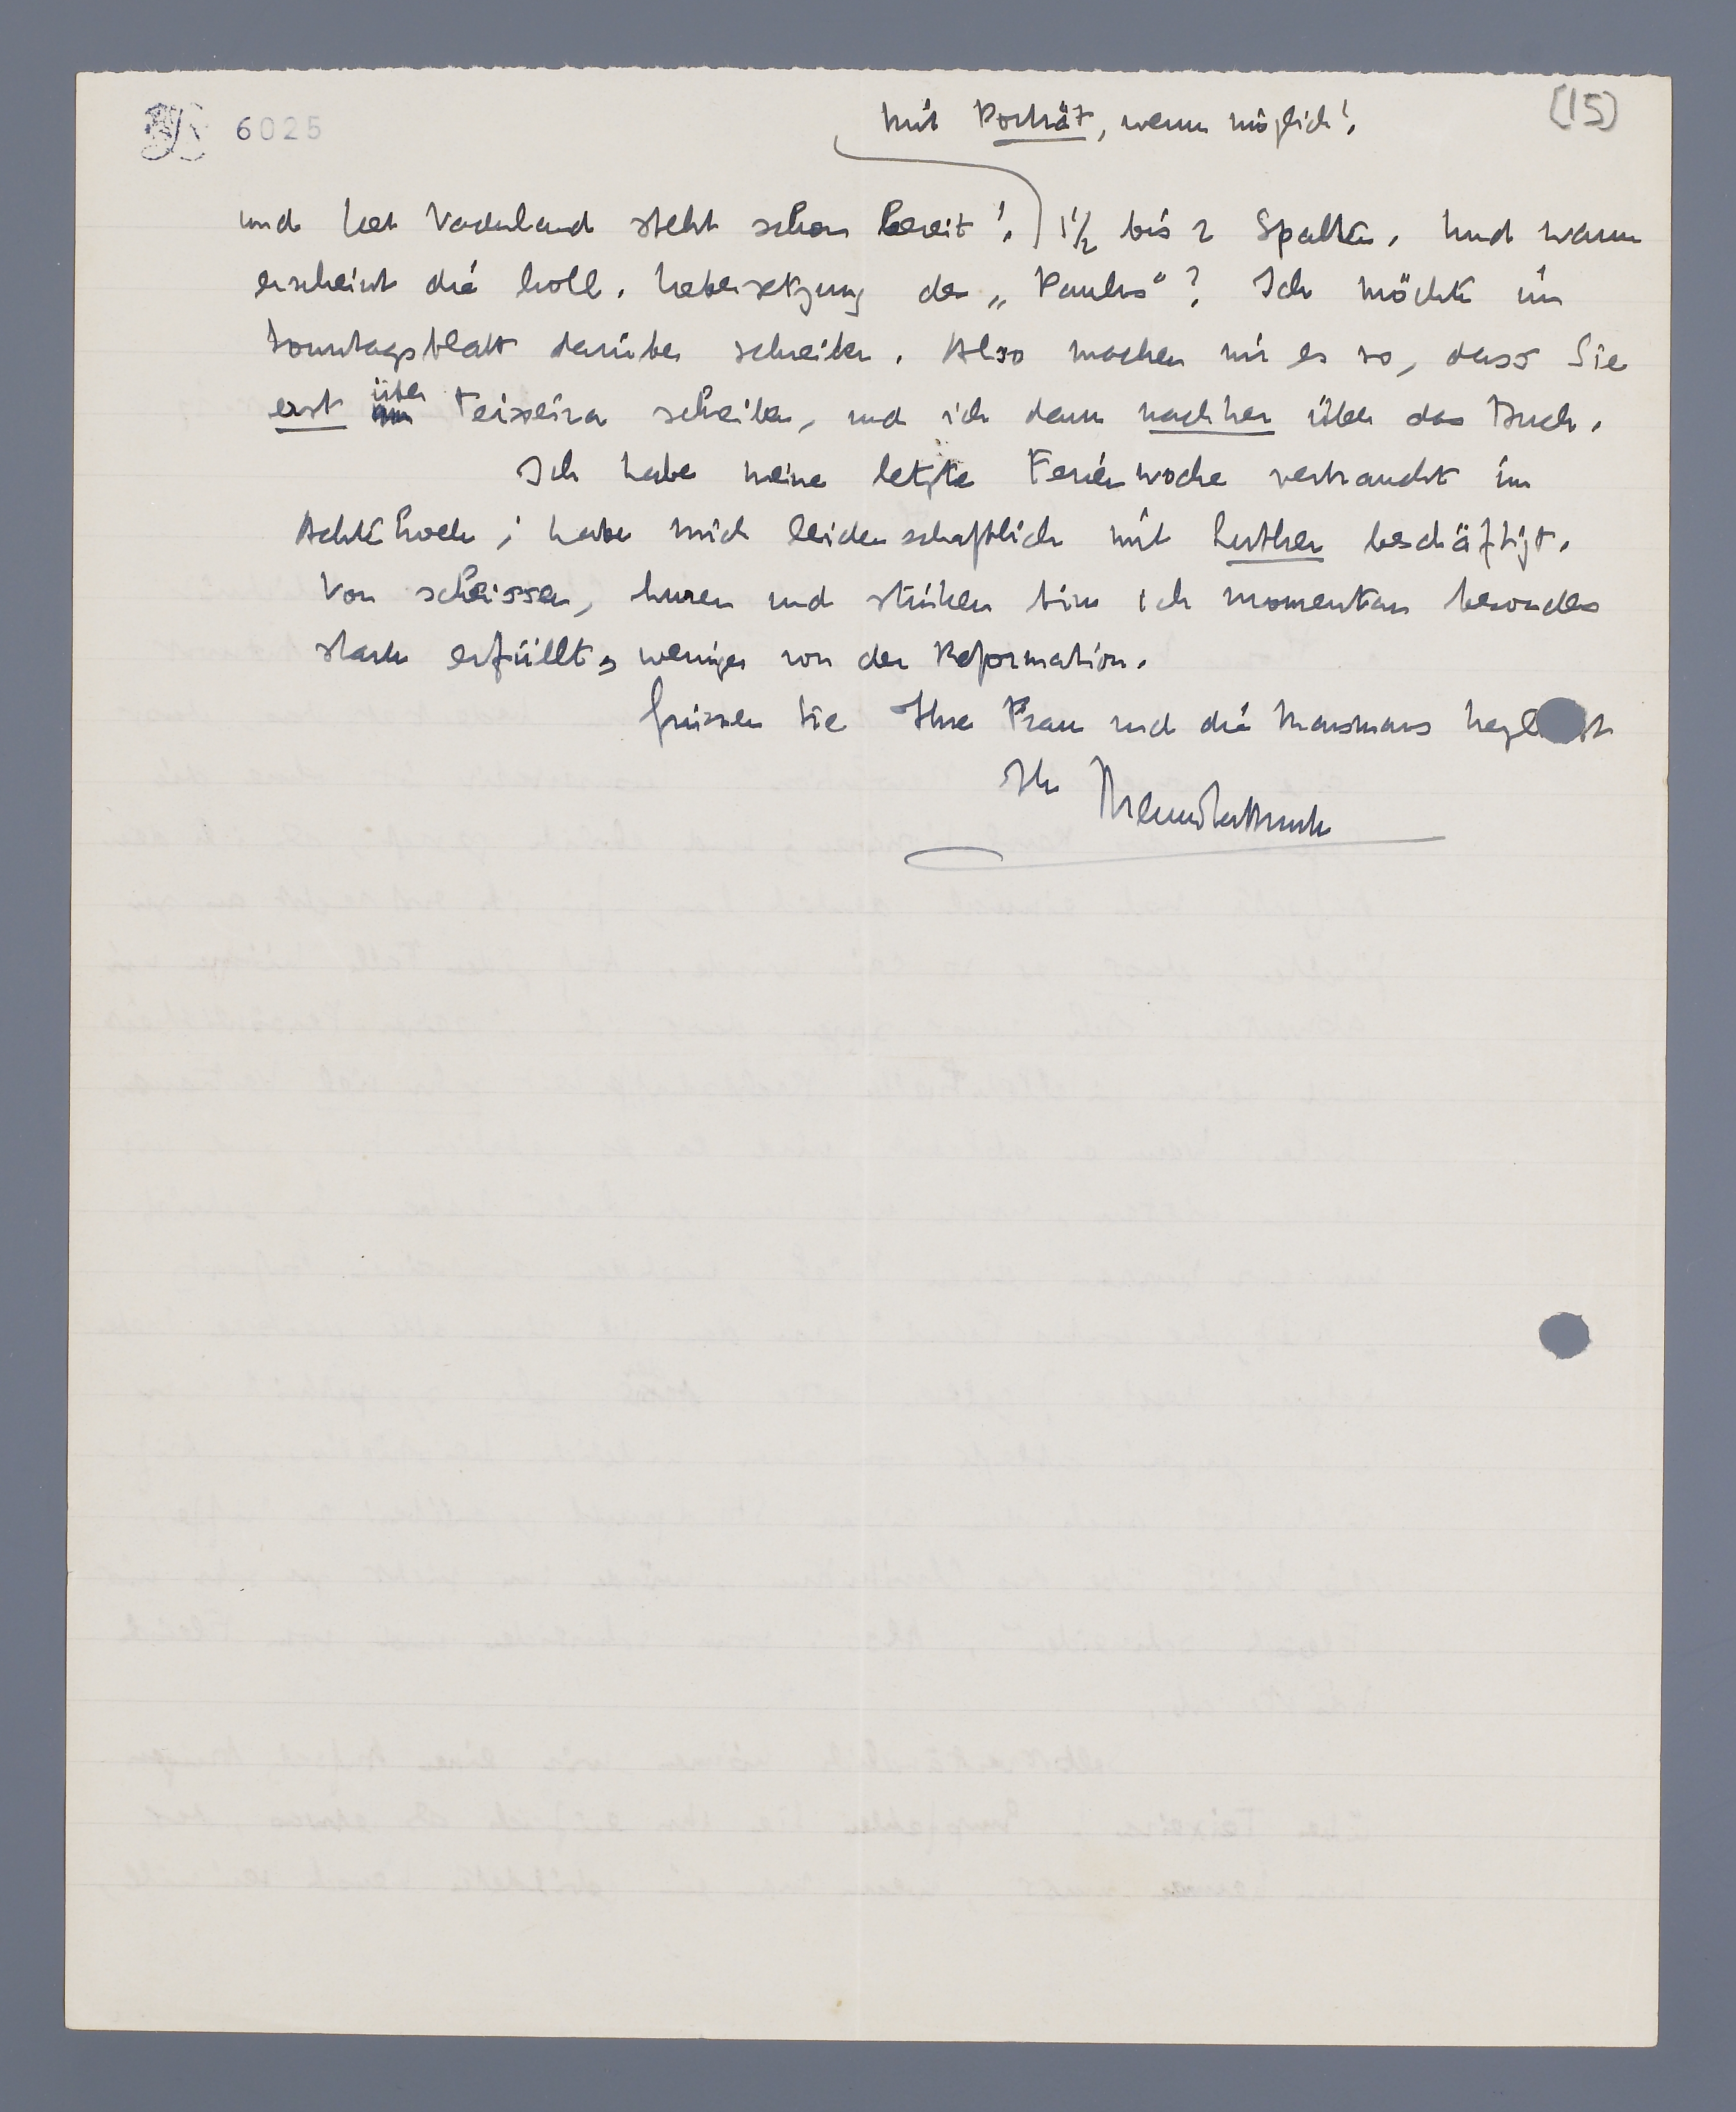 6025
(15)
mit Porträt, wenn möglich!
und Het Vaderland steht schon bereit! 1½ bis 2 Spalten. Und wann
erscheint die holl. Uebersetzung der „Paulus“? Ich möchte im
Sonntagsblatt darüber schreiben. Also machen wir es so, dass Sie
erst über Teixeira schreiben, und ich dann nachher über das Buch.
Ich habe meine letzte Ferienwoche verbraucht im
Achterhoek; habe mich leidenschaftlich mit Luther beschäftigt.
Von scheissen, huren und stinken bin ich momentan besonders
stark erfüllt, weniger von der Reformation.
Grüssen Sie Ihre Frau und die Marsmans
Ihr Menno ter Braak